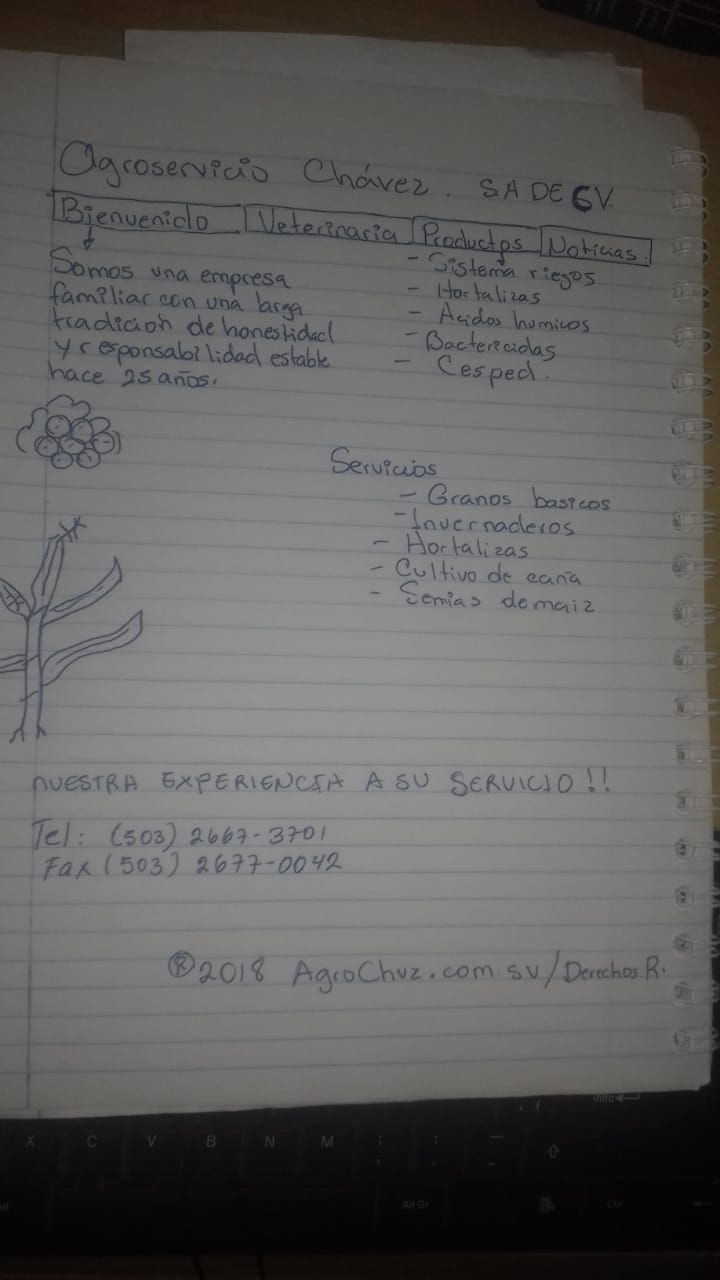 Agroservicio Chávez. SA DE CV.
Bienvenido Veterinaria Productos Noticias.
Somos una empresa
familiar con una larga
tradición de honestidad
y responsabilidad estable
hace 25 años.
- Sistema riegos
- Hortalizas
- Acidos humicos
- Bactericidas
- Cesped.
Servicios
- Granos basicos
- Invernaderos
- Hortalizas
- Cultivo de caña
- Semias de maiz
NUESTRA EXPERIENCIA A SU SERVICIO!!
Tel: (503) 2667-3701
Fax (503) 2677-0042
®2018 AgroChvz.com.sv/Derechos R.
X C V B N M ; : -
Alt Gr
Intro
Ctrl